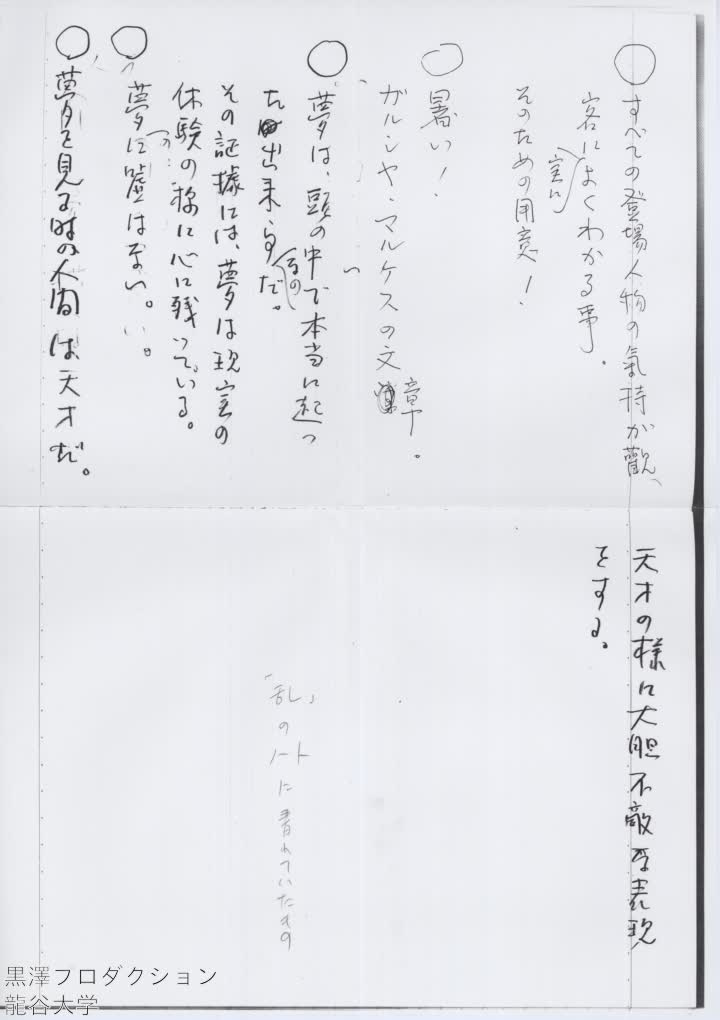 ○すべての登場人物の氣持が觀
客に実によくわかる事。
そのための用意！
○暑い！
ガルシヤ・マルケスの文章。
○夢は、頭の中で本当に起つ
た出来事なのだ。
その証據には、夢は現実の
体験の様に心に残つている。
○夢に嘘はない。
○夢を見る時の人間は天才だ。
天才の様に大胆不敵な表現
をする。
「乱」のノートに書れていたもの
黒澤プロダクション
龍谷大学